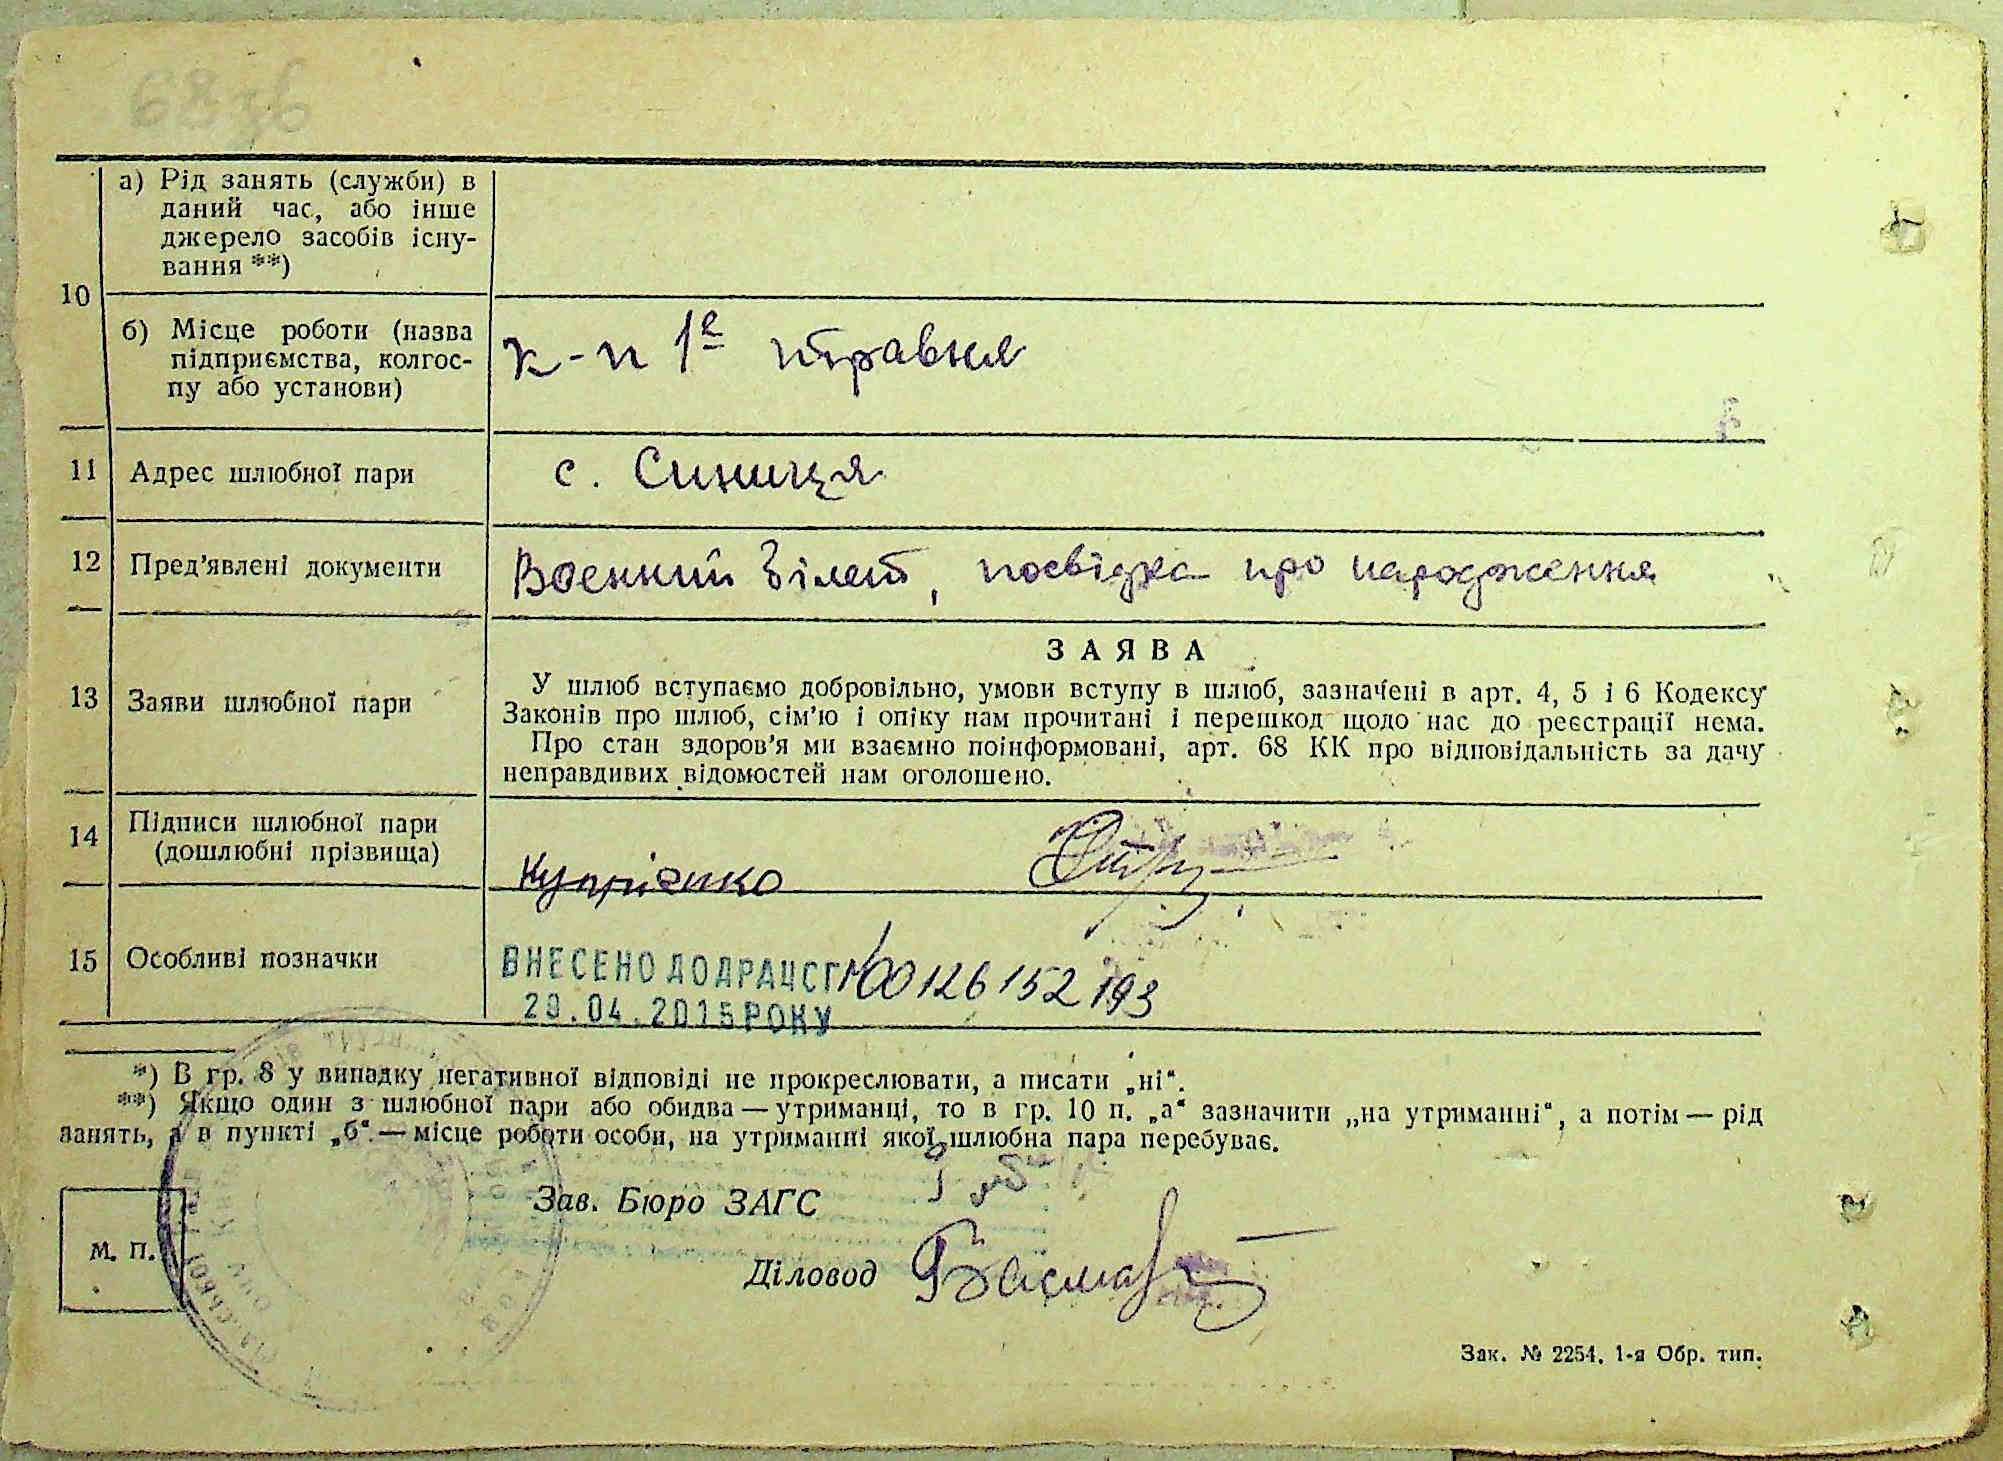 68зб
10
а) Рід занять (служби) в
даний час, або інше
джерело засобів існу-
вання **)
б) Місце роботи (назва
підприємства, колгос-
пу або установи)
к-п 1е травня
11 Адрес шлюбної пари
с. Синиця
12 Пред’явлені документи
Военний білет, посвідка про народження
13 Заяви шлюбної пари
ЗАЯВА
У шлюб вступаємо добровільно, умови вступу в шлюб, зазначені в арт. 4, 5 і 6 Кодексу
Законів про шлюб, сім’ю і опіку нам прочитані і перешкод щодо нас до реєстрації нема.
Про стан здоров’я ми взаємно поінформовані, арт. 68 КК про відповідальність за дачу
неправдивих відомостей нам оголошено.
14 Підписи шлюбної пари
(дошлюбні прізвища)
Купрієнко
15 Особливі позначки
ВНЕСЕНО ДО ДРАЦСГ №00126152193
29.04.2015 РОКУ
*) В гр. 8 у випадку негативної відповіді не прокреслювати, а писати „ні“.
**) Якщо один з шлюбної пари або обидва — утриманці, то в гр. 10 п. „а“ зазначити „на утриманні“, а потім — рід
занять, а в пункті „б“ — місце роботи особи, на утриманні якої шлюбна пара перебуває.
Зав. Бюро ЗАГС
М. П.
Діловод
Зак. № 2254. 1-я Обр. тип.